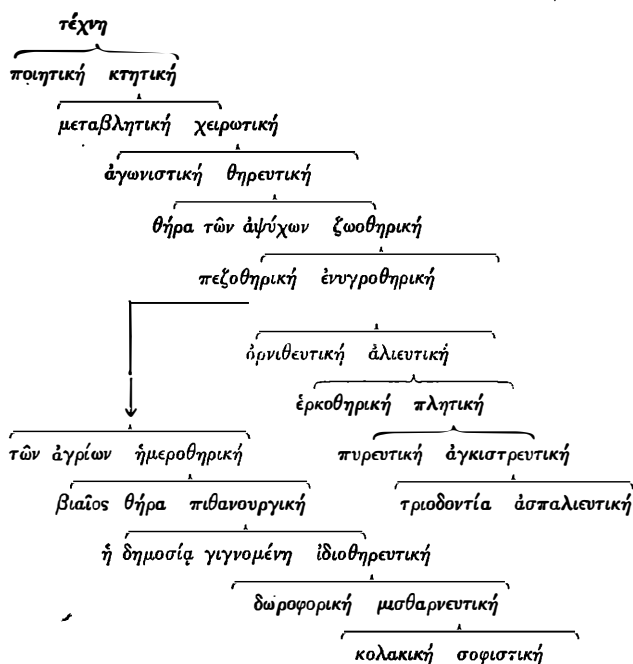 τέχνη
ποιητική κτητική
μεταβλητική χειρωτική
ἀγωνιστική θηρευτική
θήρα τῶν ἀψύχων ζωοθηρική
πεζοθηρική ἐνυγροθηρική
ὀρνιθευτική ἁλιευτική
ἑρκοθηρική πλητική
τῶν ἀγρίων ἡμεροθηρική πυρευτική ἀγκιστρευτική
βιαῖος θήρα πιθανουργική τριοδοντία ἀσπαλιευτική
ἡ δημοσίᾳ γιγνομένη ἰδιοθηρευτική
δωροφορική μισθαρνευτική
κολακική σοφιστική